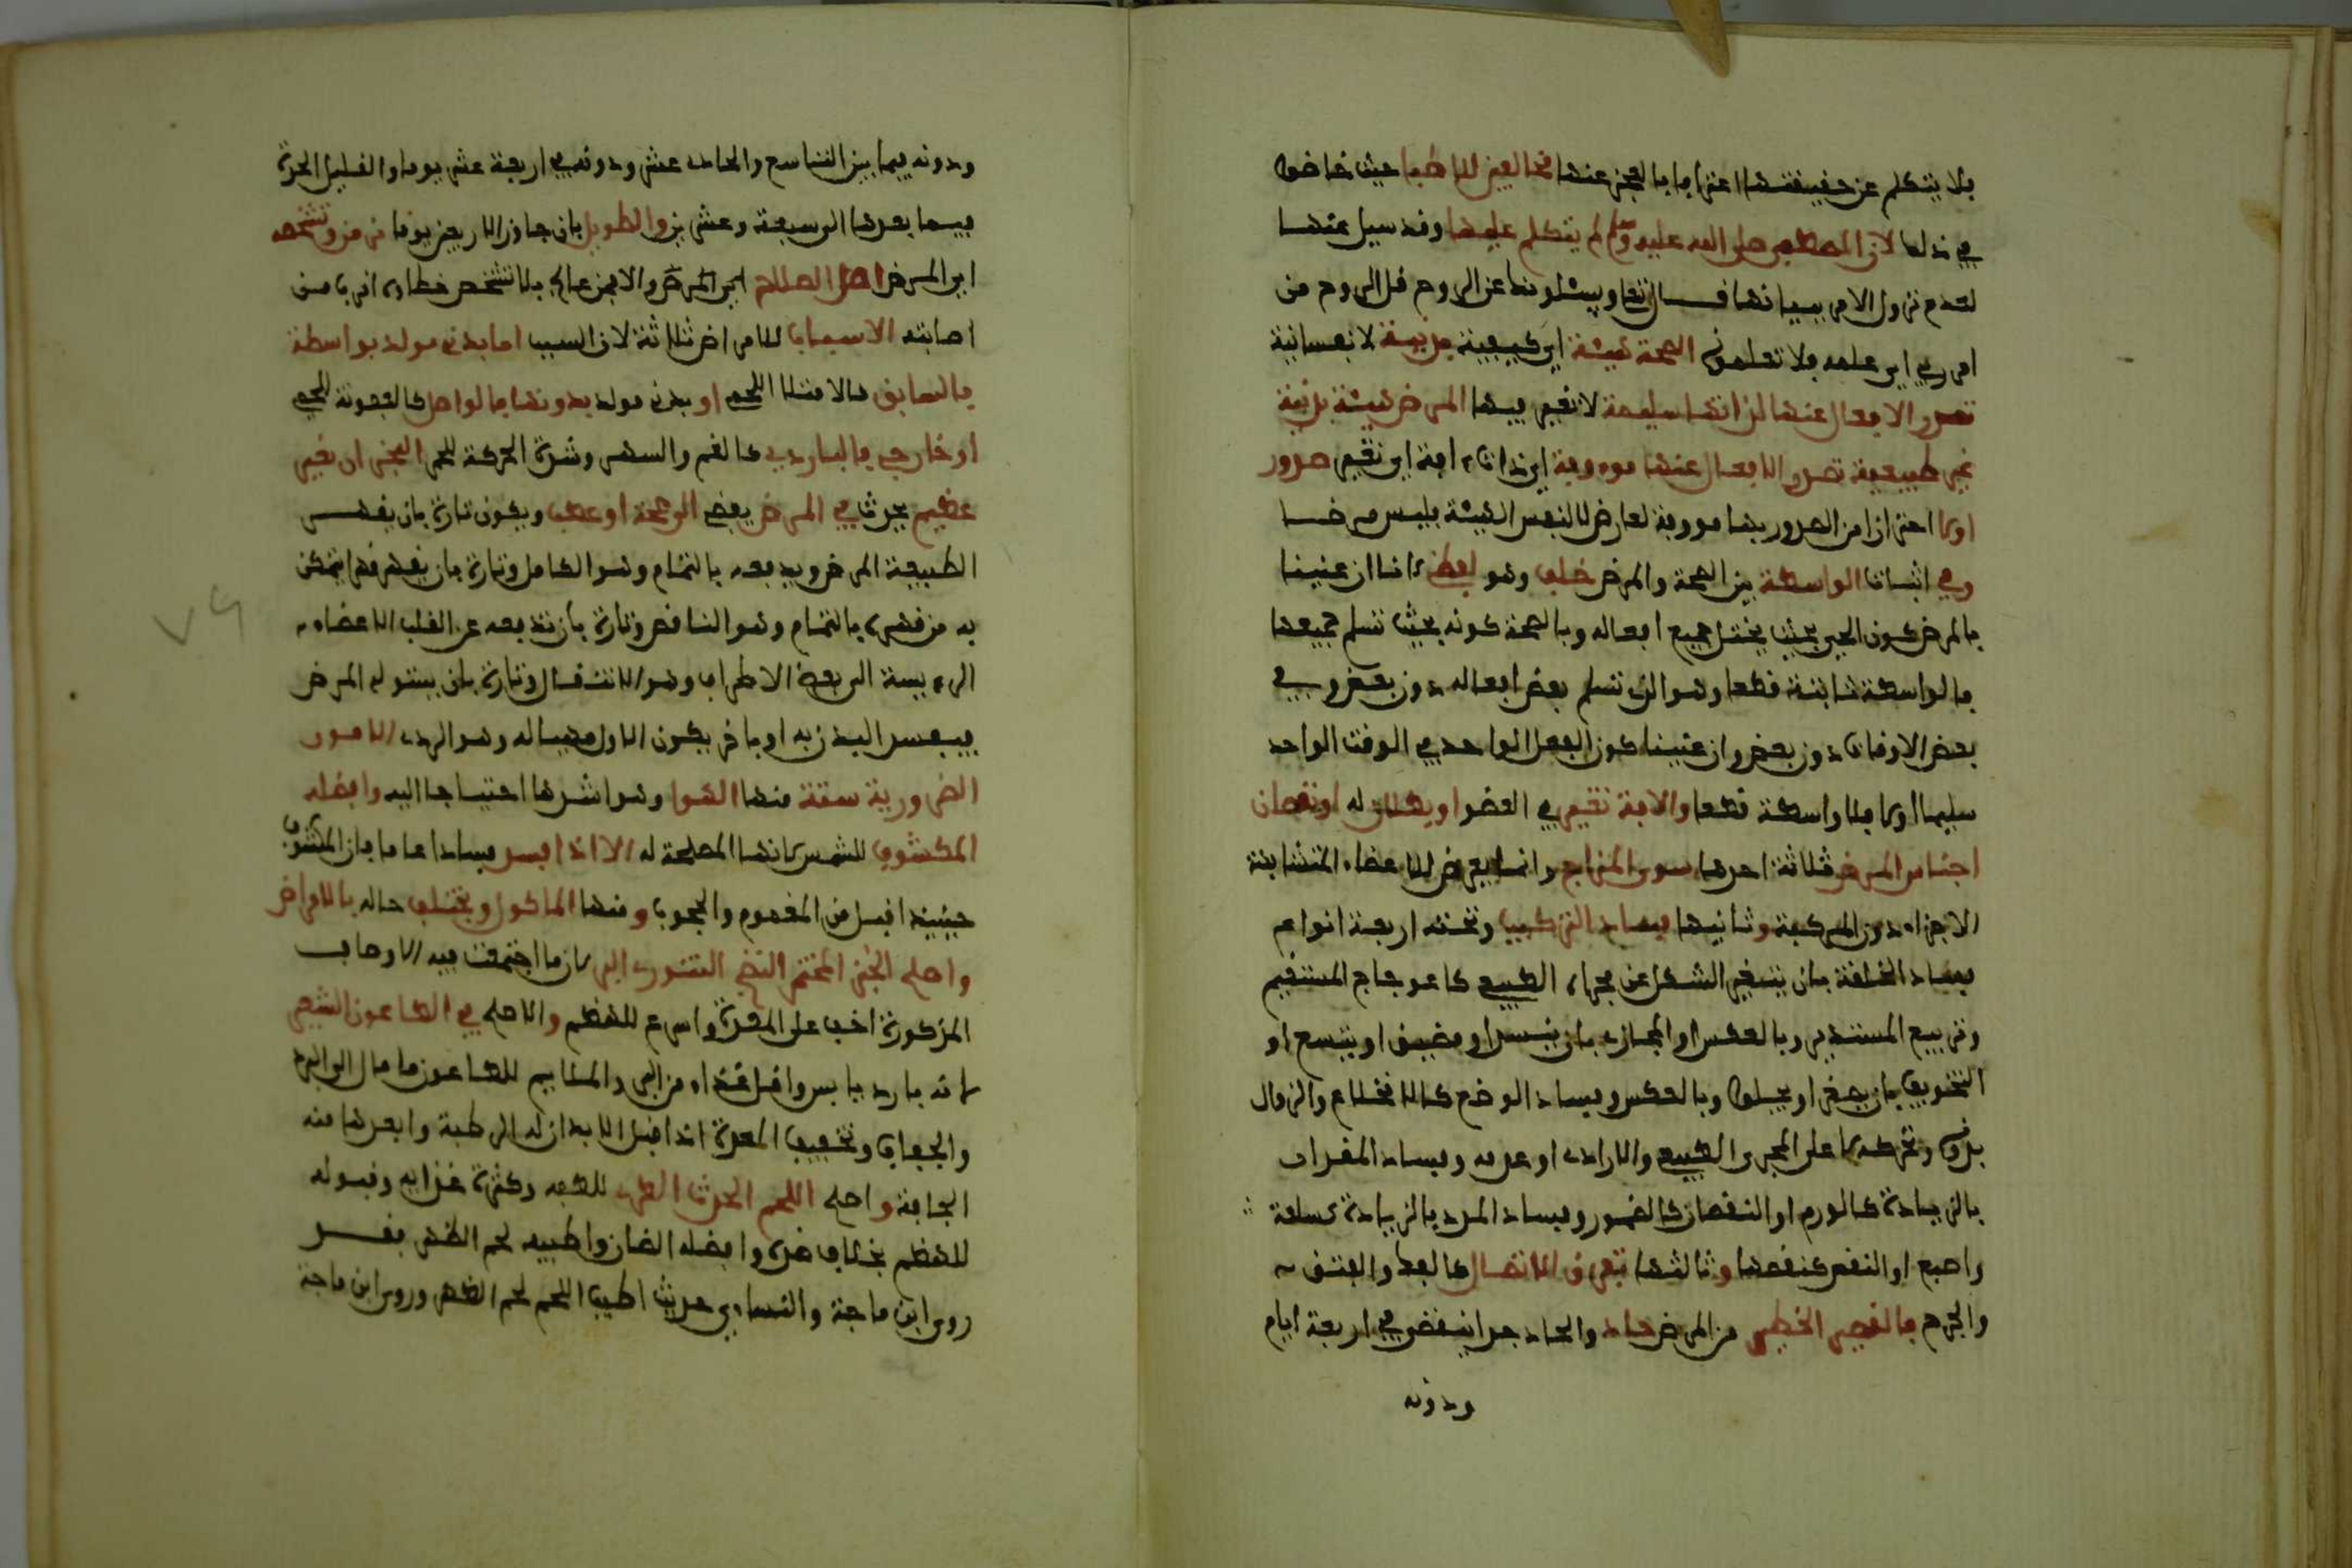 فلا يتكلم عن حقيقتها اعترافا بالعجز عنها مخالفين للاطبا حيث خاضوا
في ذلك لان المصطفى صلى الله عليه وسلم لم يتكلم عليها وقد سيل عنها
لعدم نزول الامر ببيانها قال تعا ويسئلونك عن الروح قل الروح من
امر ربي اي علمه فلا تعلمونه الصحة هيئة اي كيفية بدنية لا نفسانية
تصدر الافعال عنها لذاتها سليمة لا تغير فيها المرض هيئة بدنية
غير طبيعية تصدر الافعال عنها موءوفة اي ذات ءافة اي تغير صدور
اولا احترازا من الصدور بها موءوفة لعارض لا لنفس الهيئة فليس مرضا
وفي اثبات الواسطة بين الصحة والمرض خلف وهو لفظي لانا ان عنينا
بالمرض كون الحي بحيث يختل جميع افعاله وبالصحة كونه بحيث تسلم جميعها
فالواسطة ثابتة قطعا وهو الذي تسلم بعض افعاله دون بعض وفي
بعض الاوقات دون بعض وان عنينا كون الفعل الواحد في الوقت الواحد
سليما اولا فلا واسطة قطعا والافة تغير في العضو او بطلان له او نقصان
اجناس المرض ثلاثة احدها سوء المزاج وانما يعرض للاعضاء المتشابهة
الاجزاء دون المركبة وثانيها فساد التركيب وتحته اربعة انواع
فساد الخلقة بان يتغير الشكل عن مجراه الطبيعي كاعوجاج المستقيم
وتربيع المستدير وبالعكس او المجاري بان ينسد او يضيق او يتسع او
التجويف بان يصغر او يخلو وبالعكس وفساد الوضع كالانخلاع والزوال
بدونه وتحركه لا على المجرى الطبيعي والارادي او عدمه وفساد المقدار
بالزيادة كالورم او النقصان كالضمور وفساد العدد بالزيادة كسلعة
واصبع او النقص كنقصها وثالثها تفرق الاتصال كالفك والفتق
والجرح فالقصير الخطير من المرض حاد والحاد جدا ينقضي في اربعة ايام
ودونه
ودونه فيما بين التاسع والحادي عشر ودونه في اربعة عشر يوما والقليل الحدة
فيما بعدها الى سبعة وعشرين والطويل بان جاوز الاربعين يوما مزمن وتشخيصه
اي المرض اصل العلاج اي المرض والا فمن عالج بلا تشخيص خطاءه اقرب من
اصابته الاسباب للامراض ثلاثة لان السبب اما بدني مولد بواسطة
فالسابق كالامتلا للحمى او بدني مولد بدونها فالواصل كالعفونة للحمى
او خارجي فالبادي كالغم والسهر وشدة الحركة للحمى البحران تغير
عظيم يحدث في المرض يفضي الى صحة او عطب ويكون تارة بان يقهر
الطبيعة المرض ويدفعه بالتمام وهو الكامل وتارة بان يقهره قهرا تتمكن
به من قهره بالتمام وهو الناقص وتارة بان تدفعه عن القلب والاعضاء
الرءيسة الى بعض الاطراف وهو الانتقال وتارة بان يستولي المرض
فيفسد البدن به او باخر يكون الاول مهيئا له وهو الردي الامور
الضرورية ستة منها الهوا وهو اشدها احتياجا اليه وافضله
المكشوف للشمس لانها المصلحة له الا اذا افسد فسادا عاما فان المكشوف
حينيذ اقبل من المغموم والمحجوب ومنها الماكول ويختلف حاله بالامراض
واصلح الخبز المختمر النضج التنوري البري لان ما اجتمعت فيه الاوصاف
المذكورة اخف على المعدة واسرع للهضم والاصلح في الطاعون الشعير
لانه بارد يابس واقل غذاء من البر والملايم للطاعون ما مال الى البرد
والجفاف وتخفيف المعدة اذ اقبل الابدان له الرطبة وابعدها منه
الجافة واصلح اللحم الحدث الطري للطفه وكثرة غذايه وقبوله
للهضم بخلاف ضده وافضله الضان واطيبه لحم الظهر فقد
روى ابن ماجة والنساءي حديث اطيب اللحم لحم الظهر وروى ابن ماجة